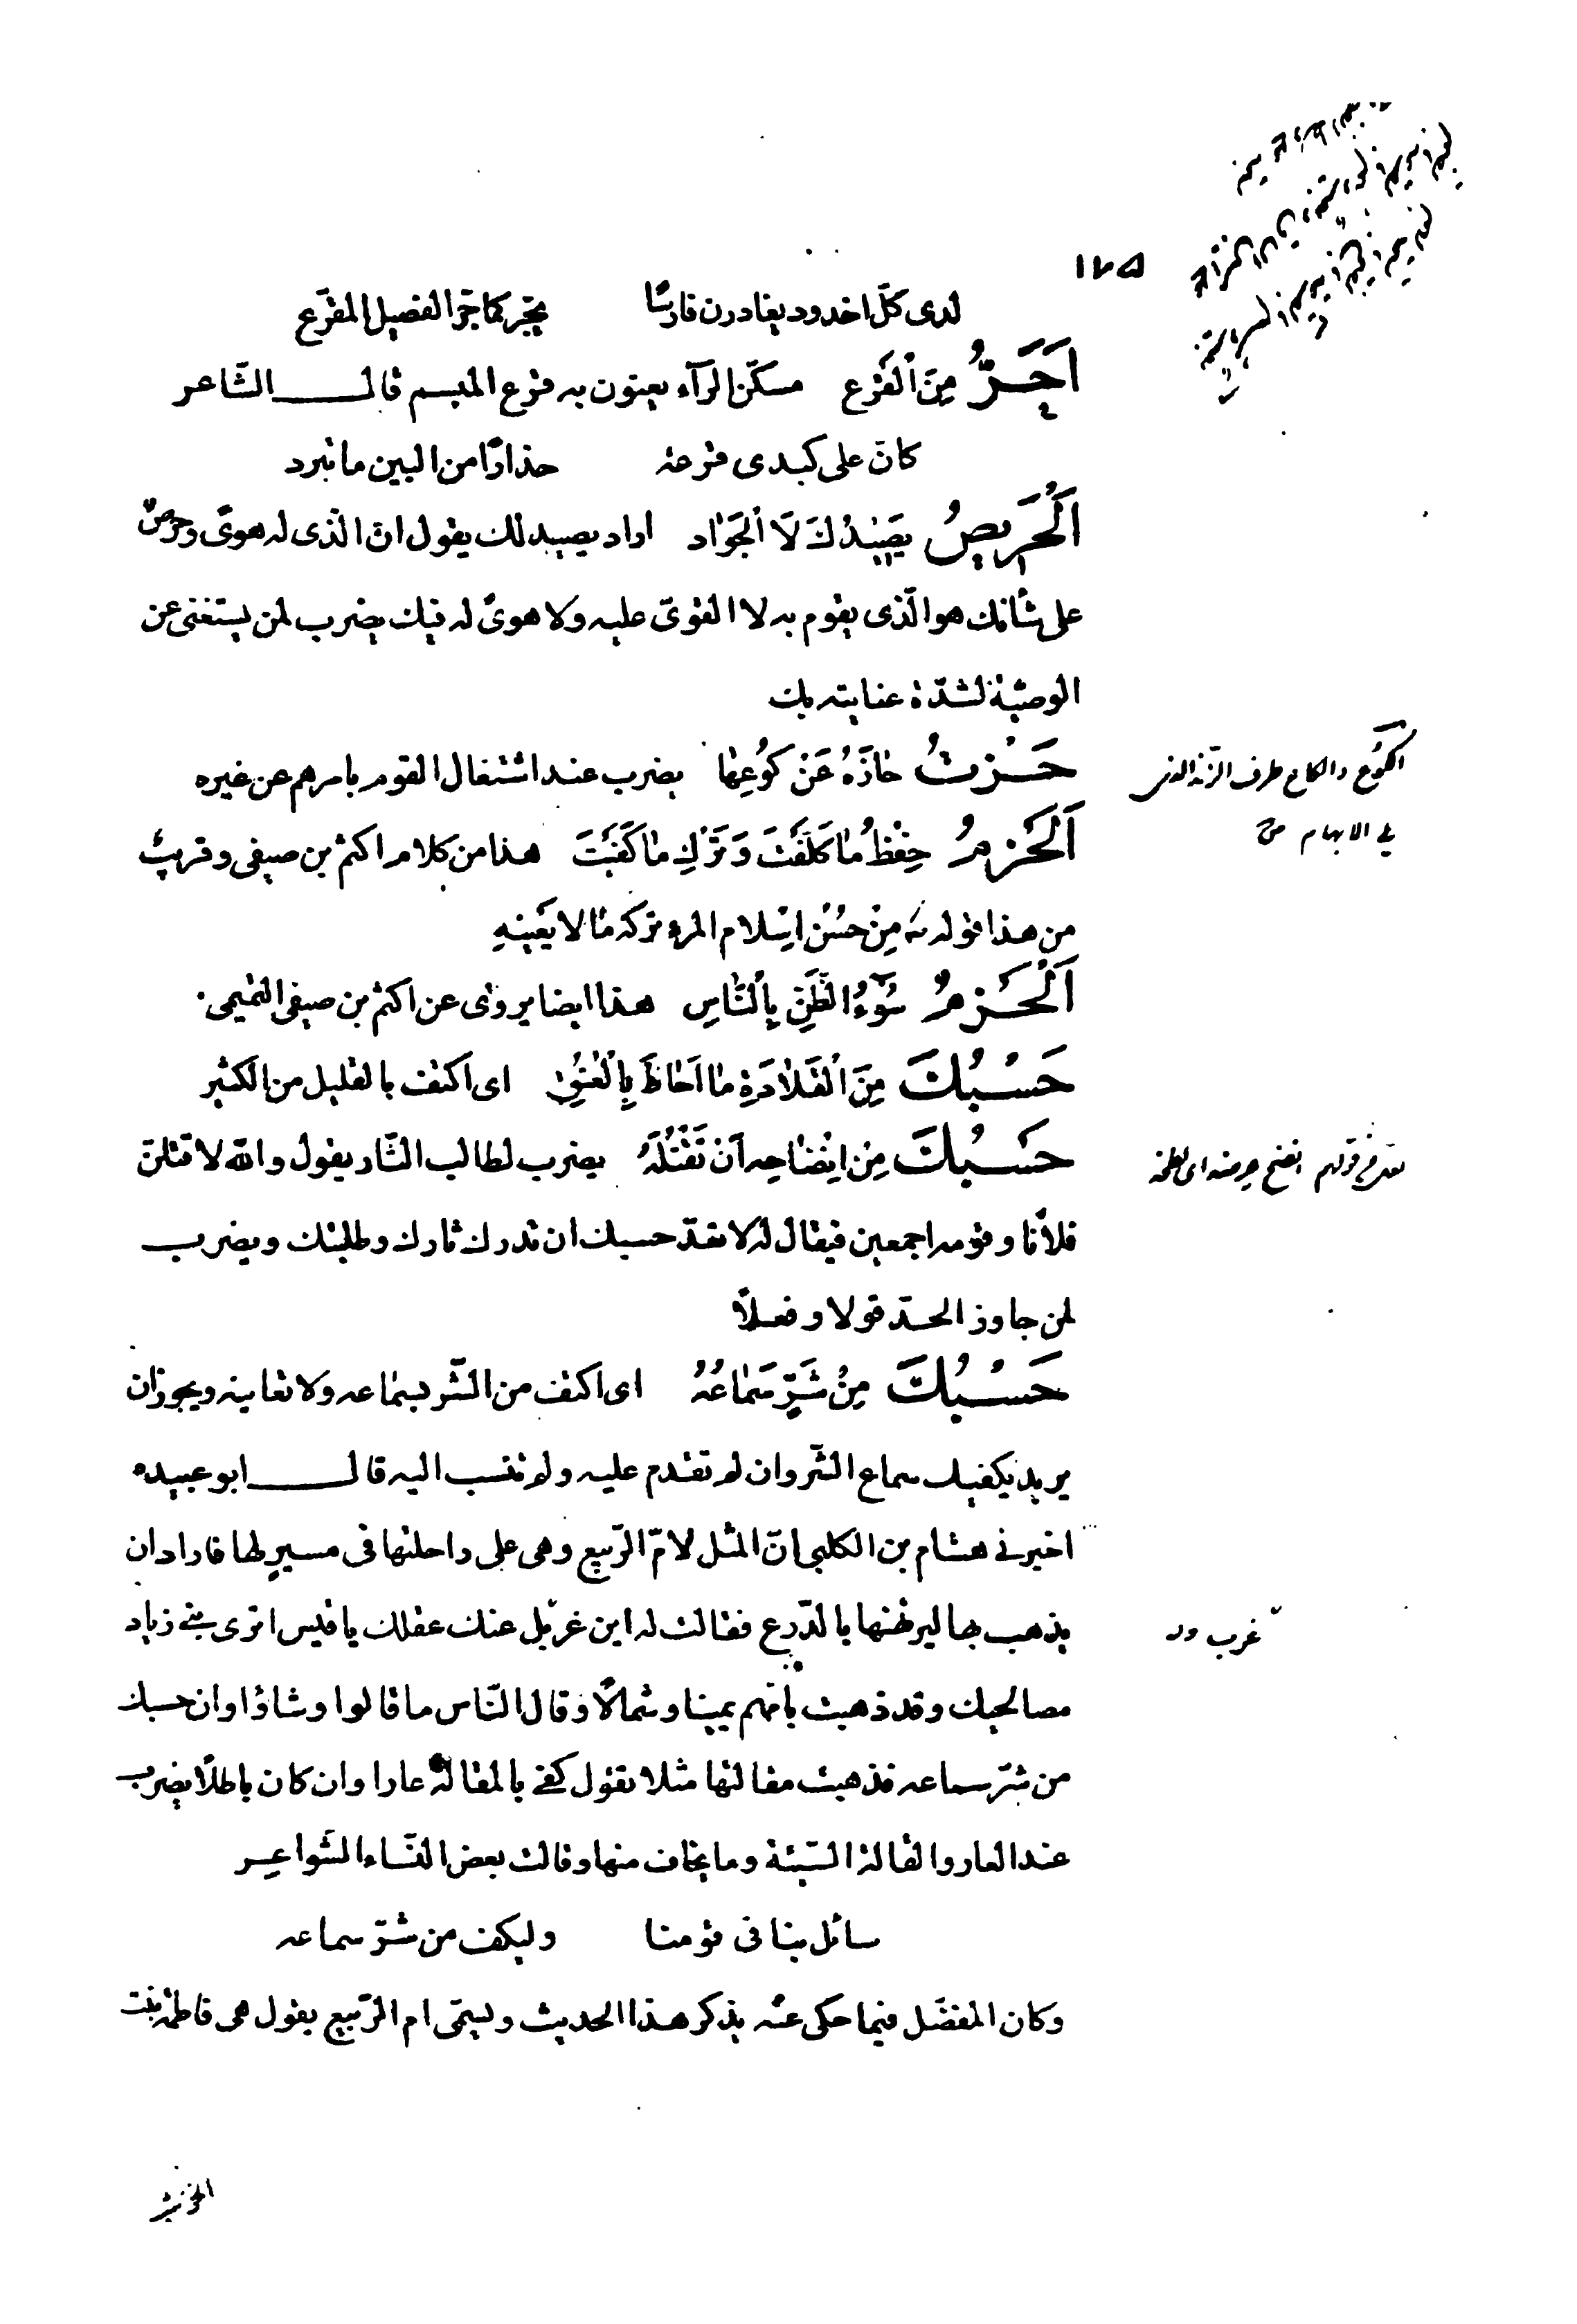 ١٧٥
لدى كلّ اخدود يغادرن فارسًا يجرّ كما جرّ الفصيل المقرّع
اَحَرُّ مِنَ اَلْقَرْع مسكّن الرآء يعنون به قرع الميسم قال الشّاعر
كانّ على كبدى قرعة حذارًا من البين ما تبرد
اَلْحَرِيصُ يَصِيْدُكَ لَا اَلْجَوَاد اراد يصيد لك يقول انّ الّذى له هوىً وحرصٌ
على شأنك هو الّذى يقوم به لا القوىّ عليه ولا هوىً له فيك يضرب لمن يستغنى عن
الوصيّة لشدّة عنايته بك
حَـــزَّتْ حَازَّةٌ عَنْ كُوْعِهَا يضرب عند اشتغال القوم بامرهم عن غيره
اَلْحَزْمُ حِفْظُ مَا كَلَّفْتَ وَتَرْكُ مَا كَفَيْتَ هذا من كلام اكثم بن صيفى وقريبٌ
من هذا قوله مِنْ حُسْنِ اِسْلام المرء تركه مَا لا يَعْنِيْهِ
اَلْحَـــزْمُ سُوْءُ الظَّنِّ بِاَلنَّاسِ هذا ايضا يروٰى عن اكثم بن صيفى التميمى
حَسْبُكَ مِنَ اَلْقَلَادَةِ مَا اَحَاطَ بِالْعُنُقِ اى اكتف بالقليل من الكثير
حَسْبُكَ مِنْ اِنْضَاجِه اَنْ تَقْتُلَهُ يضرب لطالب الثّار يقول والله لاقتلنّ
فلانًا وقومه اجمعين فيقال له لا تعدّ حسبك ان تدرك ثارك وطلبتك ويضرب
لمن جاوز الحدّ قولا وفعلًا
حَسْبُكَ مِنْ شَرٍّ سَمَاعُهُ اى اكتف من الشّر بسماعه ولا تعاينه ويجوز ان
يريد يكفيك سماع الشّر وان لم تقدم عليه ولم تنسب اليه قال ابو عبيده
اخبرنى هشام بن الكلبى انّ المثل لامّ الرّبيع وهى على راحلتها فى مسيرٍ لها فاراد ان
يذهب بها ليرتهنها بالدّرع فقالت له اين عزّبل عنك عقلك يا قيس اترى بنى زياد
مصالحيك وقد ذهبت بامّهم يمينا وشمالًا وقال النّاس ما قالوا وشاؤا وان حسبك
من شرّ سماعه فذهبت مقالتها مثلا تقول كفى بالمقالة عارا وان كان باطلًا يضرب
عند العار والقالة السّيّئة وما يخاف منها وقالت بعض النّساء الشّواعِـر
سائل بنا فى قومنا وليكف من شرّ سماعه
وكان المفضّل فيما حكى عنْه يذكر هذا الحديث ويسمّى ام الرّبيع يقول هى فاطمة بنت
الكوُع والكاع طرف الزّند الذى
يلى الابهام
غرب
الخرشب